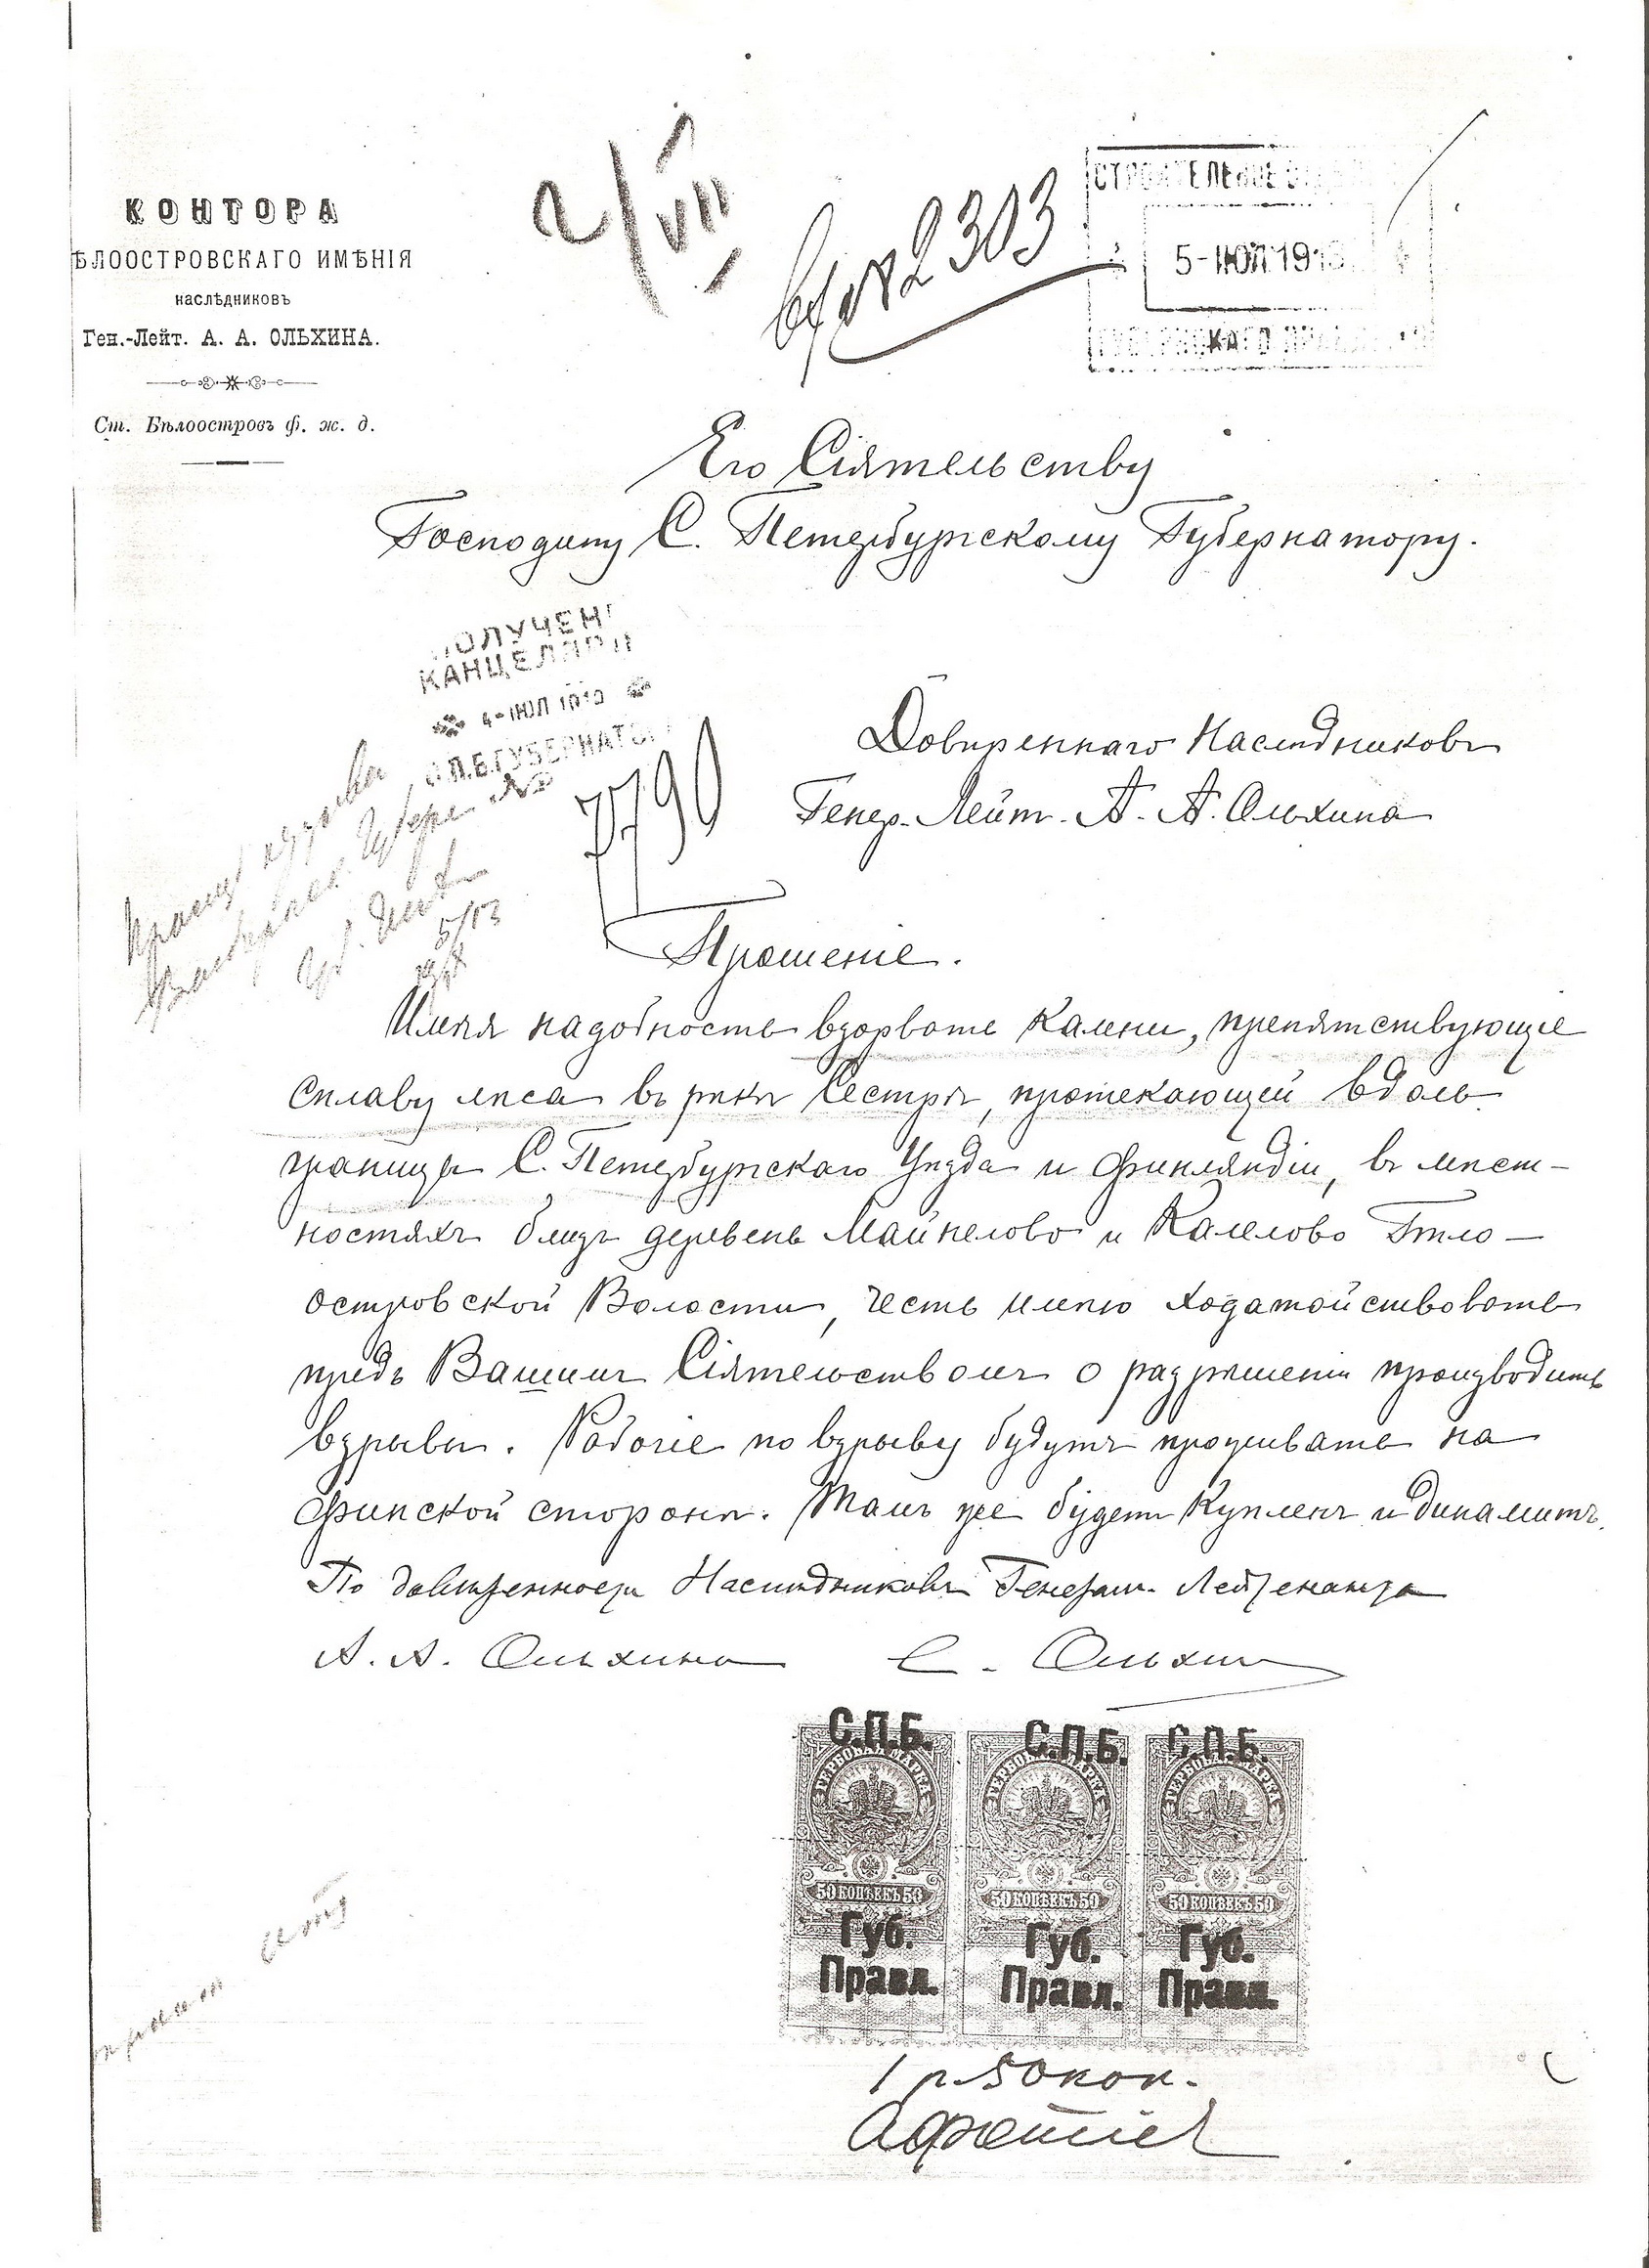 КОНТОРА
ѢЛООСТРОВСКАГО ИМѢНІЯ
наслѣдниковъ
Ген.-Лейт. А. А. ОЛЬХИНА.
Ст. Бѣлоостровъ ф. ж. д.
2/VII
вх № 2303
СТРОИТЕЛЬНОЕ
5-ІЮЛ 191
Его Сіятельству
Господину С. Петербургскому Губернатору.
ПОЛУЧЕН
КАНЦЕЛЯРИ
4-ІЮЛ 1913
С.П.Б.ГУБЕРНАТО
7790
Довѣреннаго Наслѣдниковъ
Генер. Лейт. А. А. Ольхина
Прошеніе.
Имѣя надобность взорвать камни, препятствующіе
сплаву лѣса въ рѣкѣ Сестрѣ, протекающей вдоль
границы С. Петербургскаго Уѣзда и Финляндіи, въ мѣст-
ностяхъ близъ деревень Майнелово и Калелово Бѣло-
островской Волости, честь имѣю ходатайствовать
предъ Вашимъ Сіятельствомъ о разрѣшеніи производить
взрывы. Рабочіе по взрыву будутъ проживать на
финской сторонѣ. Тамъ же будетъ купленъ и динамитъ.
По довѣренности Наслѣдниковъ Генерал. Лейтенанта
А. А. Ольхина С. Ольхин
С.П.Б. С.П.Б. С.П.Б.
ГЕРБОВАЯ МАРКА ГЕРБОВАЯ МАРКА ГЕРБОВАЯ МАРКА
50 КОПѢЕКЪ 50 50 КОПѢЕКЪ 50 50 КОПѢЕКЪ 50
Губ. Губ. Губ.
Правл. Правл. Правл.
1 р. 50 коп.